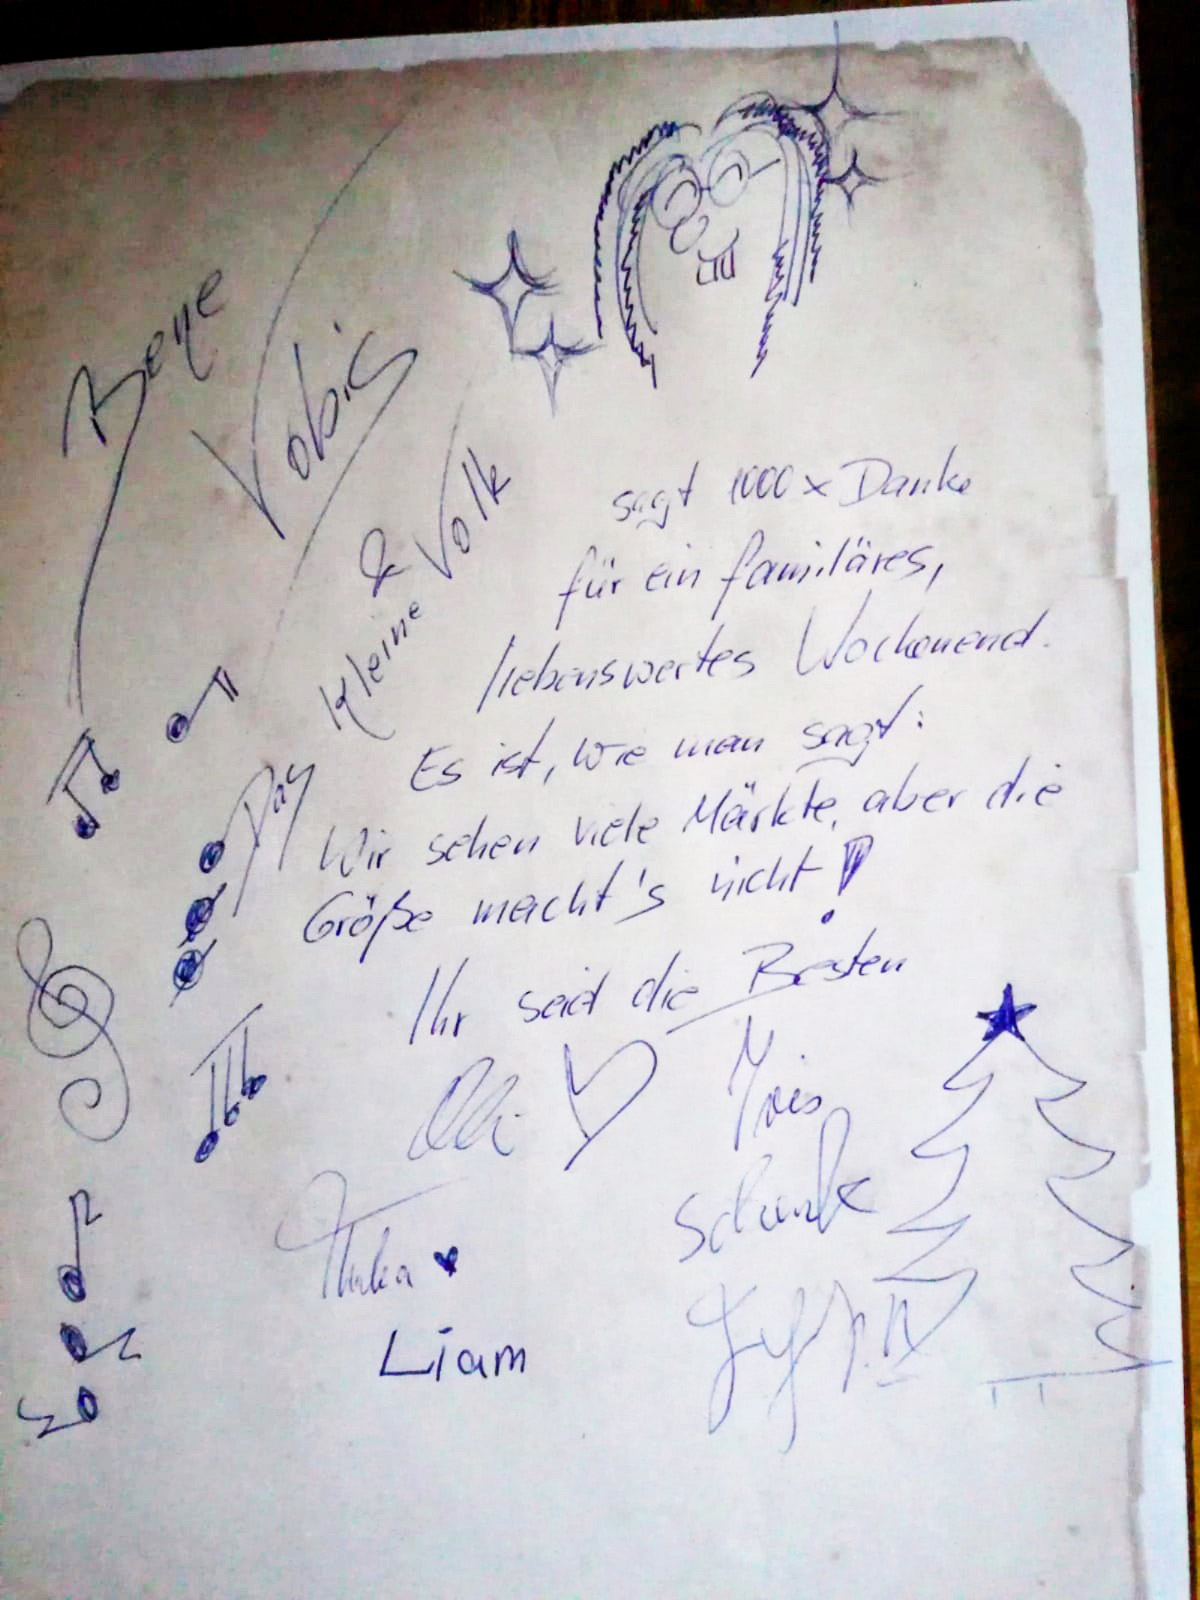 Bene
Vobis
&
Kleine Volk
sagt 1000 x Danke
für ein familäres,
liebenswertes Wochenend.
Es ist, wie man sagt:
Wir sehen viele Märkte, aber die
Größe macht's nicht!
Ihr seid die Besten
Olli
Liam